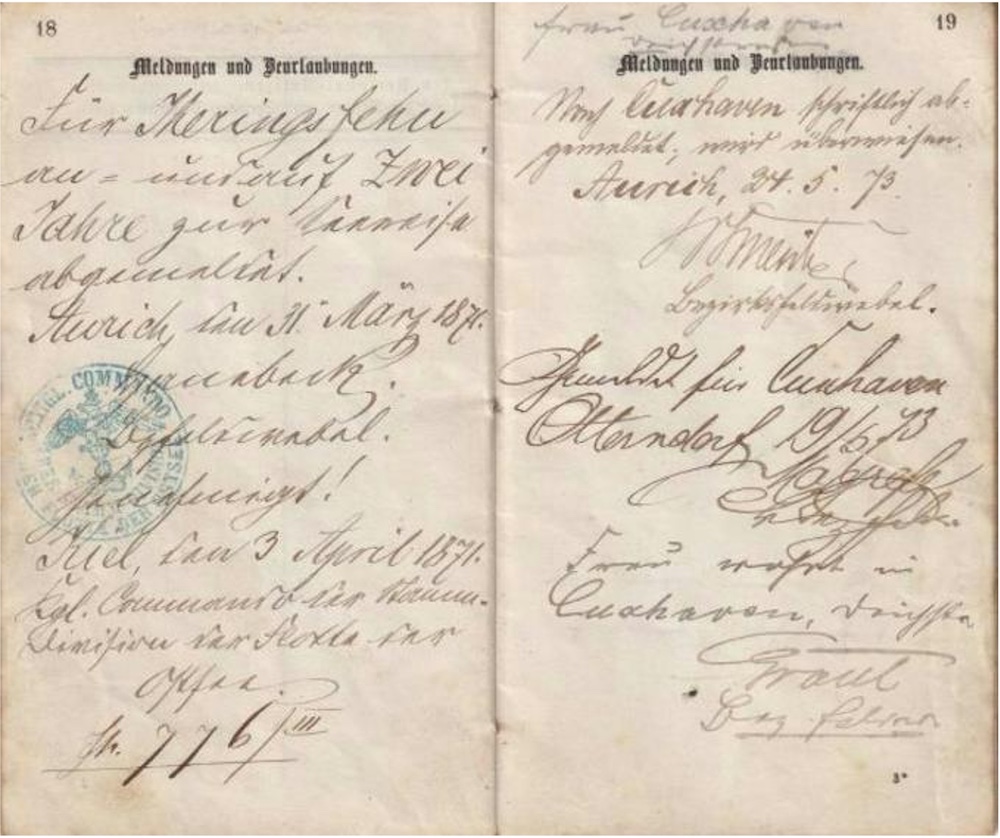 18
Meldungen und Beurlaubungen.
Für Iheringsfehn
an = und auf Zwei
Jahre zur Seereise
abgemeldet.
Aurich, den 31. März 1871.
Bezfeldwebel.
COMMANDO
Genehmigt!
Kiel, den 3 April 1871.
Kgl. Commando der Stamm-
Division der Flotte der
Ostsee.
776/III
19
Frau Cuxhaven
Deichstraße
Meldungen und Beurlaubungen.
Nach Cuxhaven schriftlich ab-
gemeldet; wird überwiesen.
Aurich, 24. 5. 73.
Bezirksfeldwebel.
Gemeldet für Cuxhaven
Otterndorf 19/5 73
Frau wohnt in
Cuxhaven, Deichstr
Graul
Bez. Feldw.
3*